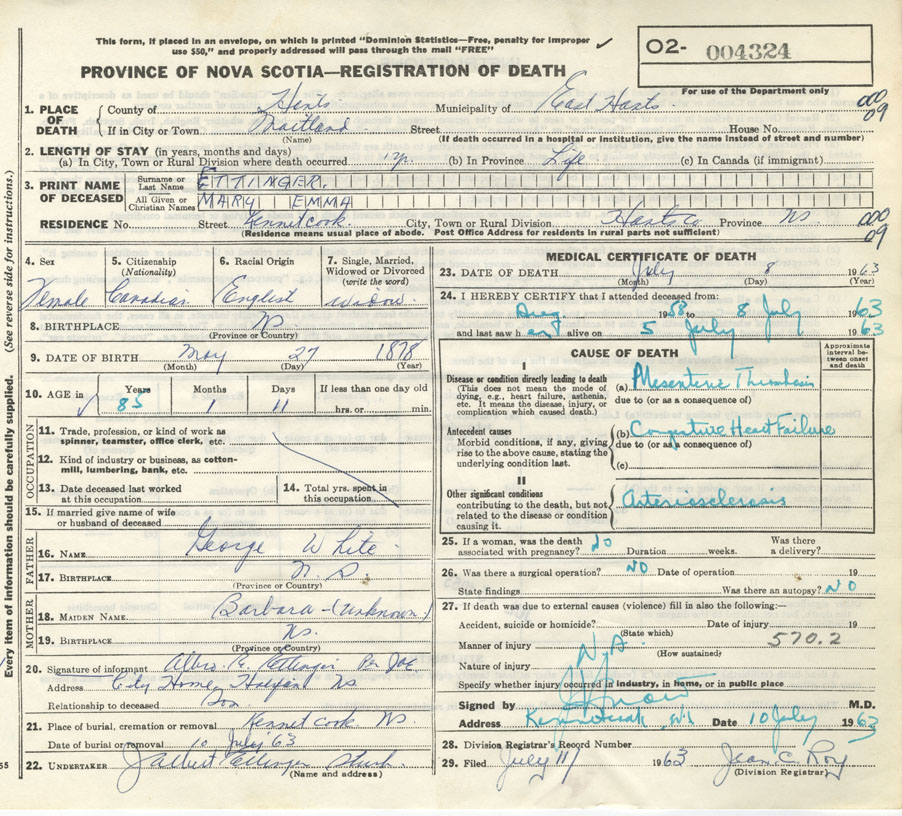 This form, if placed in an envelope, on which is printed "Dominion Statistics—Free, penalty for improper
use $50," and properly addressed will pass through the mail "FREE"
O2- 004324
For use of the Department only
PROVINCE OF NOVA SCOTIA—REGISTRATION OF DEATH
1. PLACE OF DEATH County of Hants Municipality of East Hants 000
If in City or Town Maitland Street House No. 09
(Name) (If death occurred in a hospital or institution, give the name instead of street and number)
2. LENGTH OF STAY (in years, months and days)
(a) In City, Town or Rural Division where death occurred (b) In Province Life (c) In Canada (if immigrant)
3. PRINT NAME OF DECEASED Surname or Last Name ETTINGER.
All Given or Christian Names MARY EMMA
RESIDENCE No. Street Kennetcook City, Town or Rural Division Hants Co Province NS 000
(Residence means usual place of abode. Post Office Address for residents in rural parts not sufficient) 09
4. Sex Female
5. Citizenship (Nationality) Canadian
6. Racial Origin English
7. Single, Married, Widowed or Divorced (write the word) widow
8. BIRTHPLACE NS
(Province or Country)
9. DATE OF BIRTH May 27 1878
(Month) (Day) (Year)
10. AGE in Years Months Days If less than one day old
85 1 11 hrs. or min.
OCCUPATION
11. Trade, profession, or kind of work as spinner, teamster, office clerk, etc.
12. Kind of industry or business, as cotton-mill, lumbering, bank, etc.
13. Date deceased last worked at this occupation
14. Total yrs. spent in this occupation
15. If married give name of wife or husband of deceased
FATHER
16. NAME George White
17. BIRTHPLACE N.S.
(Province or Country)
MOTHER
18. MAIDEN NAME Barbara - (Unknown)
19. BIRTHPLACE NS.
(Province or Country)
20. Signature of informant Ettinger Per
Address City Home Halifax NS
Relationship to deceased Son
21. Place of burial, cremation or removal Kennetcook NS
Date of burial or removal 10 July 63
22. UNDERTAKER Ettinger
(Name and address)
MEDICAL CERTIFICATE OF DEATH
23. DATE OF DEATH July 8 1963
(Month) (Day) (Year)
24. I HEREBY CERTIFY that I attended deceased from:
Aug 1958 to 8 July 1963
and last saw her alive on 5 July 1963
CAUSE OF DEATH
Approximate interval between onset and death
I
Disease or condition directly leading to death
(This does not mean the mode of dying, e.g., heart failure, asthenia, etc. It means the disease, injury, or complication which caused death.)
(a) Mesenteric Thrombosis
due to (or as a consequence of)
Antecedent causes
Morbid conditions, if any, giving rise to the above cause, stating the underlying condition last.
(b) Congestive Heart Failure
due to (or as a consequence of)
(c)
II
Other significant conditions
contributing to the death, but not related to the disease or condition causing it.
Arteriosclerosis
25. If a woman, was the death associated with pregnancy? No Duration weeks. Was there a delivery?
26. Was there a surgical operation? NO Date of operation 19
State findings Was there an autopsy? NO
27. If death was due to external causes (violence) fill in also the following:—
Accident, suicide or homicide? Date of injury 19
(State which)
Manner of injury N.A. 570.2
(How sustained)
Nature of injury
Specify whether injury occurred in industry, in home, or in public place
Signed by M.D.
Address Date 10 July 1963
28. Division Registrar's Record Number
29. Filed July 11 1963 Jean C. Roy
(Division Registrar)
Every item of information should be carefully supplied. (See reverse side for instructions.)
55